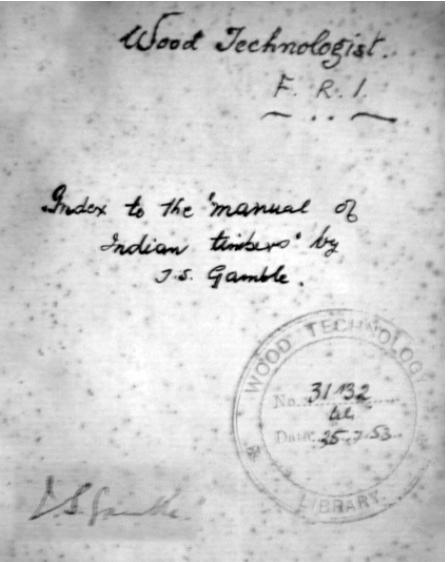 Wood Technologist.
F. R. I.
Index to the "manual of
Indian timbers" by
J. S. Gamble.
WOOD TECHNOLOGY
No. 31132
Date 25-7-53
LIBRARY
J. S. Gamble